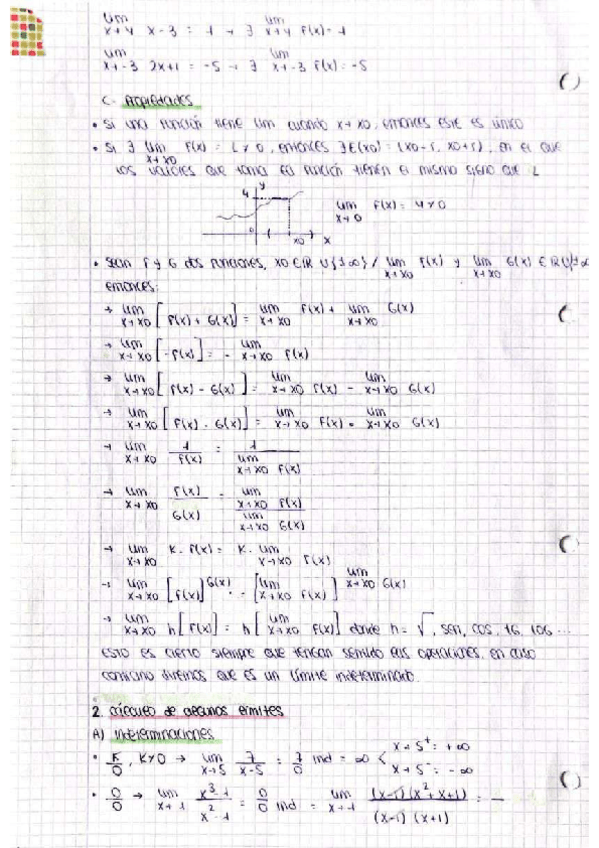 lim x→4 x-3 = 1 → ∃ lim x→4 F(x) = 1
lim x→-3 2x+1 = -5 → ∃ lim x→-3 F(x) = -5
C. PROPIEDADES
• Si una función tiene lim cuando x→x0, entonces este es único
• Si ∃ lim x→x0 F(x) = L ≠ 0, entonces ∃ E(x0) = (x0-δ, x0+δ), en el que
los valores que toma la función tienen el mismo signo que L
4 y
lim x→0 F(x) = 4>0
0 x0 x
• Sean F y G dos funciones, x0 ∈ R ∪ {±∞} / lim x→x0 F(x) y lim x→x0 G(x) ∈ R ∪ {±∞
entonces:
→ lim x→x0 [F(x) + G(x)] = lim x→x0 F(x) + lim x→x0 G(x)
→ lim x→x0 [-F(x)] = - lim x→x0 F(x)
→ lim x→x0 [F(x) - G(x)] = lim x→x0 F(x) - lim x→x0 G(x)
→ lim x→x0 [F(x) · G(x)] = lim x→x0 F(x) · lim x→x0 G(x)
→ lim x→x0 1/F(x) = 1/lim x→x0 F(x)
→ lim x→x0 F(x)/G(x) = lim x→x0 F(x)/lim x→x0 G(x)
→ lim x→x0 K · F(x) = K · lim x→x0 F(x)
→ lim x→x0 [F(x)]^G(x) = [lim x→x0 F(x)]^lim x→x0 G(x)
→ lim x→x0 h[F(x)] = h[lim x→x0 F(x)] donde h = √, sen, cos, tg, log ...
Esto es cierto siempre que tengan sentido las operaciones, en caso
contrario diremos que es un límite indeterminado.
2. Cálculo de algunos límites
A) Indeterminaciones
• K/0, K≠0 → lim x→5 7/x-5 = 7/0 ind = ∞ < x→5⁺ = +∞ x→5⁻ = -∞
• 0/0 → lim x→1 x³-1/x²-1 = 0/0 ind = lim x→1 (x-1)(x²+x+1)/(x-1)(x+1) =